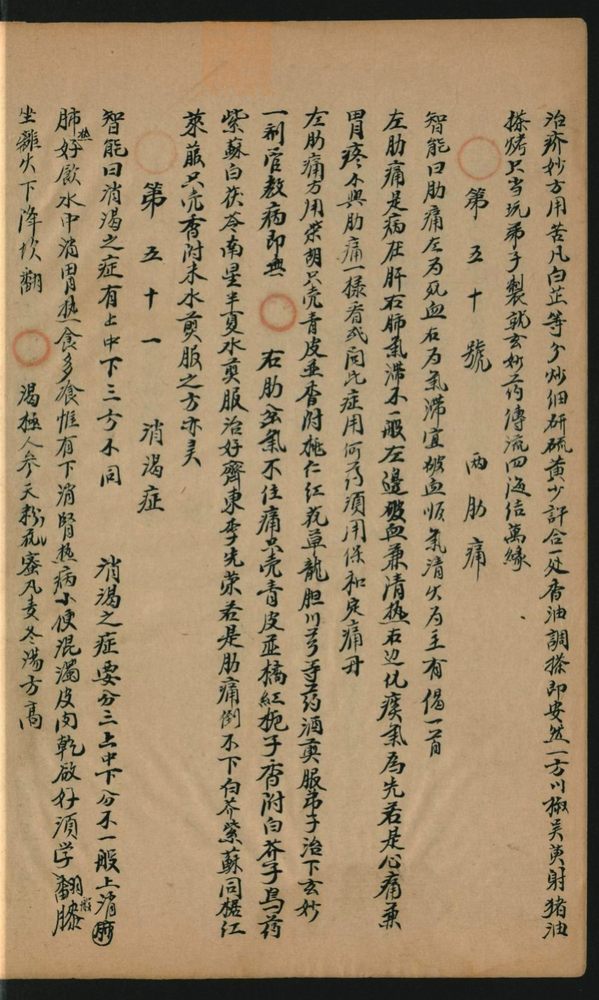 治疥妙方用苦凡白芷等分炒细研硫黄少許合一处香油調搽即安然一方川椒吴萸射猪油
搽烤只当玩弟子製就玄妙药傳流四海结萬緣
第五十號 两肋痛
智能曰肋痛左为死血右为氣滞宜破血顺氣清火为主有偈一首
左肋痛是病在肝右肺氣滞不一般左邊破血兼清热右边化痰氣為先若是心痛兼
胃疼不與肋痛一樣看或问此症用何药須用保和定痛丹
左肋痛方用柴胡只壳青皮並香附桃仁红花草龍胆川芎等药酒煎服弟子治下玄妙
一剂管教病即無 右肋岔氣不住痛只壳青皮並橘紅栀子香附白芥子烏药
紫蘇白茯苓南星半夏水煎服治好齊東李先荣若是肋痛倒不下白芥紫蘇同橘红
萊菔只壳香附末水煎服之方亦灵
第五十一 消渴症
智能曰消渴之症有上中下三方不同 消渴之症要分三上中下分不一般上消肺
肺热好飲水中消胃热食多飡惟有下消腎热病小便混濁皮肉乾欲好須学翻
坐離火下降坎翻 渴極人参天粉瓜蜜凡麦冬湯方高